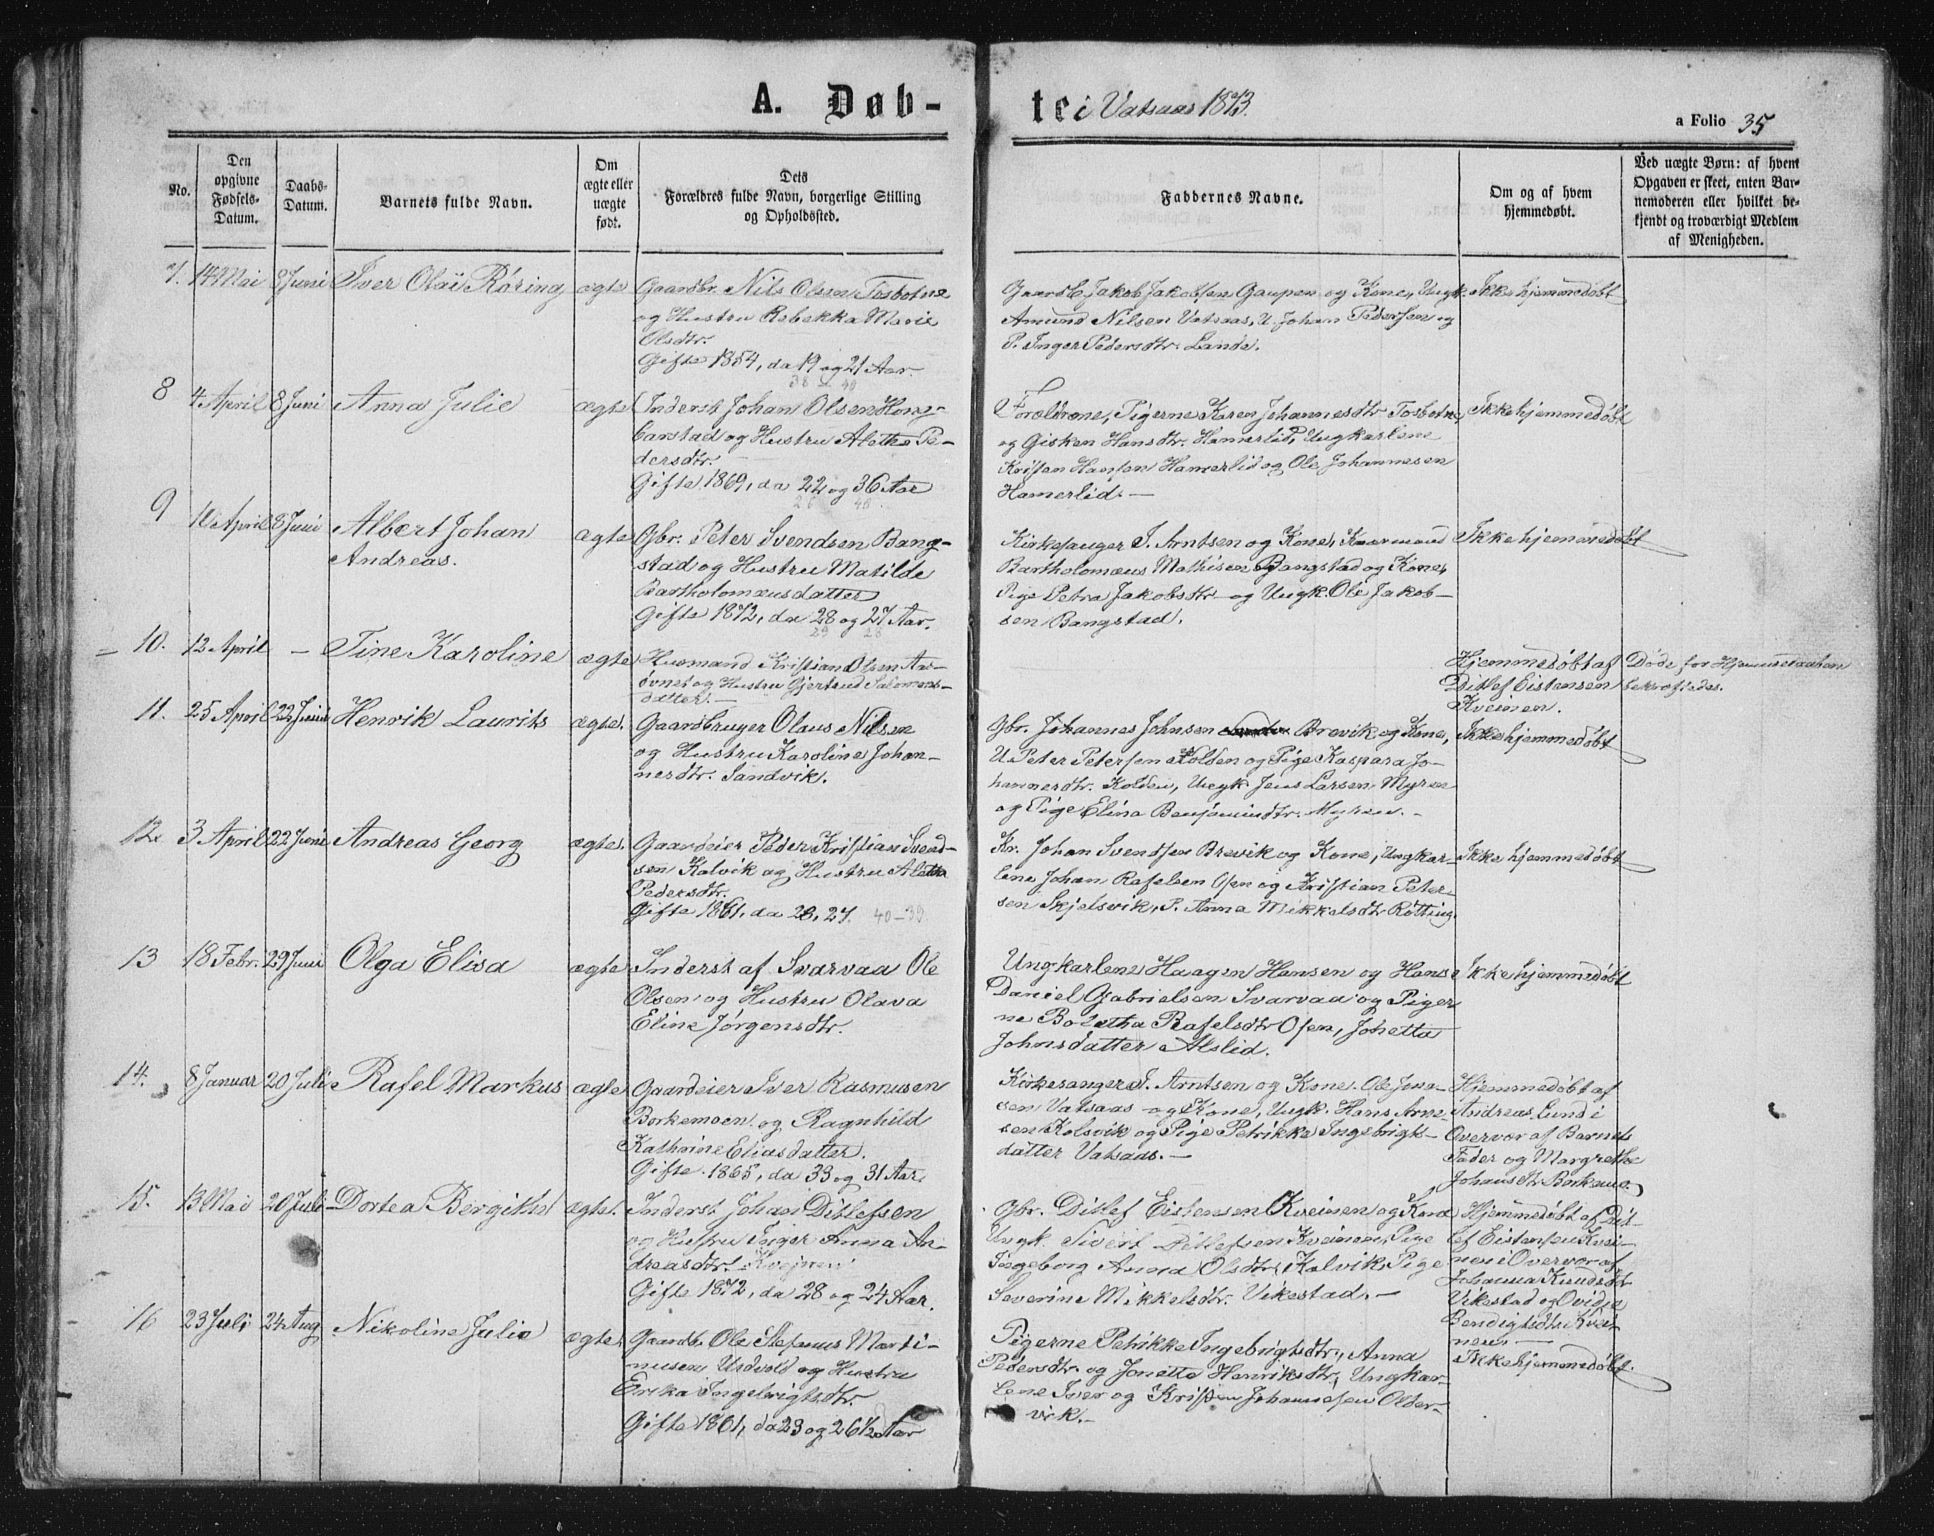 A. Døb-
te i Vatsaas 1873.
a Folio 35
No.
Den
opgivne
Fødsels-
Datum.
Daabs-
Datum.
Barnets fulde Navn.
Om
ægte eller
uægte
født.
Dets
Forældres fulde Navn, borgerlige Stilling
og Opholdssted.
Faddernes Navne.
Om og af hvem
hjemmedøbt.
Ved uægte Børn: af hvem
Opgaven er skeet, enten Bar-
nemoderen eller hvilket be-
kjendt og troværdigt Medlem
af Menigheden.
7. 14 Mai 8 Juni Iver Olai Røring ægte
Gaardbr. Nils Olsen Tosbotne
og Hustru Rebekka Marie
Olsdtr.
Gifte 1854, da 19 og 21 Aar.
38 - 40
Gaardb. Jakob Jakobsen Gaupen og Kone, Ungk.
Amund Nilsen Vatsaas, U. Johan Pedersen og
P. Inger Pedersdtr. Lande.
Ikke hjemmedøbt
8 4 April 8 Juni Anna Julie ægte
Inderst Johan Olsen Hone-
barstad og Hustru Aletha Pe-
dersdtr.
Gifte 1869, da 22 og 36 Aar
26 40.
Forældrene, Pigerne Karen Johannesdtr Tosbotne,
og Gisken Hansdtr. Hamerlid, Ungkarlene
Kristen Hansen Hamerlid og Ole Johannesen
Hamerlid. —
Ikke hjemmedøbt
9 10 April 8 Juni Albert Johan
Andreas.
ægte
Gbr. Peter Svendsen Bang-
stad og Hustru Matilde
Bartholomæusdatter
Gifte 1872, da 28 og 27 Aar.
29 28
Kirkesanger J. Arntsen og Kone, Kaarmand
Bartholomæus Mathisen Bangstad og Kone,
Pige Petra Jakobsdtr og Ungk. Ole Jakob-
sen Bangstad.
Ikke hjemmedøbt
10. 12 April — Tine Karoline ægte
Husmand Kristian Olsen Aar-
øvnes og Hustru Gjertrud Salomons-
datter. —
Hjemmedøbt af
Ditlef Eistensen
Kveinen.
Døde før Hjemmedaaben
bekræftedes.
11. 25 April 22 Juni Henrik Laurits ægte.
Gaardbruger Olaus Nilsen
og Hustru Karoline Johan-
nesdtr. Sandvik.
Gbr. Johannes Johnsen Brevik og Kone,
U. Peter Petersen Kolden og Pige Kaspara Jo-
hannesdtr. Kolden, Ungk Jens Larsen Myren
og Pige Elina Benjamindtr. Myren. —
Ikke hjemmedøbt
12. 3 April 22 Juni Andreas Georg ægte.
Gaardeier Peder Kristian Svend-
sen Kalvik og Hustru Aletta
Pedersdtr.
Gifte 1861, da 28, 27. 40-39.
Kr. Johan Svendsen Brevik og Kone, Ungkar-
lene Johan Rafelsen Osen og Kristian Peter-
sen Skjelsvik, P. Anna Mikkelsdtr Røtting.
Ikke hjemmedøbt
13 18 Febr. 29 Juni Olga Elisa ægte
Inderst af Svarvaa Ole
Olsen og Hustru Olava
Eline Jørgensdtr.
Ungkarlene Haagen Hansen og Hans
Daniel Gabrielsen Svarvaa og Piger
ne Boletha Rafelsdtr Osen, Johetta
Johnsdatter Alslid.
Ikke hjemmedøbt
14. 8 Januar 20 Juli Rafel Markus ægte
Gaardeier Iver Rasmusen
Borkemoen og Ragnhild
Kathrine Eliasdatter.
Gifte 1865, da 33 og 31 Aar.
Kirkesanger J. Arntsen og Kone. Ole Jona-
sen Vatsaas og Kone, Ungk. Hans Arne-
sen Kolsvik og Pige Petrikke Ingebrigts-
datter Vatsaas. —
Hjemmedøbt af
Andreas Lund i
Overvær af Barnets
Fader og Margrethe
Johansdtr Borkemo.
15. 13 Mai 20 Juli Dortea Bergitha ægte.
Inderst Johan Ditlefsen
og Hustru Inger Anna An-
dreasdtr. Kvejnen
Gifte 1872, da 28 og 24 Aar.
Gbr. Ditlef Eistensen Kveinen og Kone
Ungk. Sivert Ditlefsen Kveinen, Pige
Ingeborg Anna Olsdtr. Kalvik, Pige
Severine Mikkelsdtr. Vikestad. —
Hjemmedøbt af Dit-
lef Eistensen Kvei-
nen i Overvær af
Johanna Knudsdtr
Vikestad og Ovidja
Bendigtsdtr Kvei-
nen. —
16 23 Juli 24 Aug Nikoline Julie ægte.
Gaardb. Ole Stefanus Marti-
nusen Urdvold og Hustru
Erika Ingebrigtsdtr.
Gifte 1861, da 23 og 26½ Aar
Pigerne Petrikke Ingebrigtsdtr, Anna
Pedersdtr. og Jonette Henriksdtr, Ungkar-
lene Iver og Kristen Johannesen Older-
vik. —
Ikke hjemmedøbt.